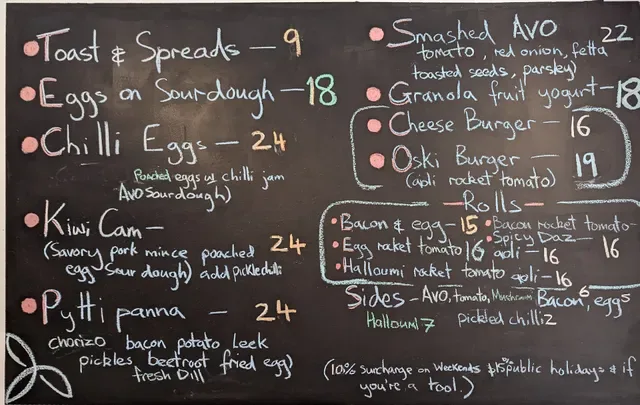 Toast & Spreads — 9
Eggs on Sourdough — 18
Chilli Eggs — 24
Poached eggs w chilli jam
Avo Sourdough)
Kiwi Cam —
(Savory pork mince poached 24
egg Sour dough) add pickle chilli
Pytti panna — 24
chorizo bacon potato Leek
pickles beetroot fried egg)
fresh Dill
Smashed AVO 22
tomato, red onion, fetta
toasted seeds, parsley)
Granola fruit yogurt — 18
Cheese Burger — 16
Oski Burger — 19
(apli rocket tomato)
Rolls
Bacon & egg — 15
Egg rocket tomato 16
Halloumi rocket tomato apli — 16
Bacon rocket tomato —
Spicy Daz — 16
apli — 16
Sides — Avo, tomato, Mushroom Bacon, 6 egg 5
Halloumi 7 pickled chilli 2
(10% surcharge on weekends & 15% public holidays & if
you're a tool.)